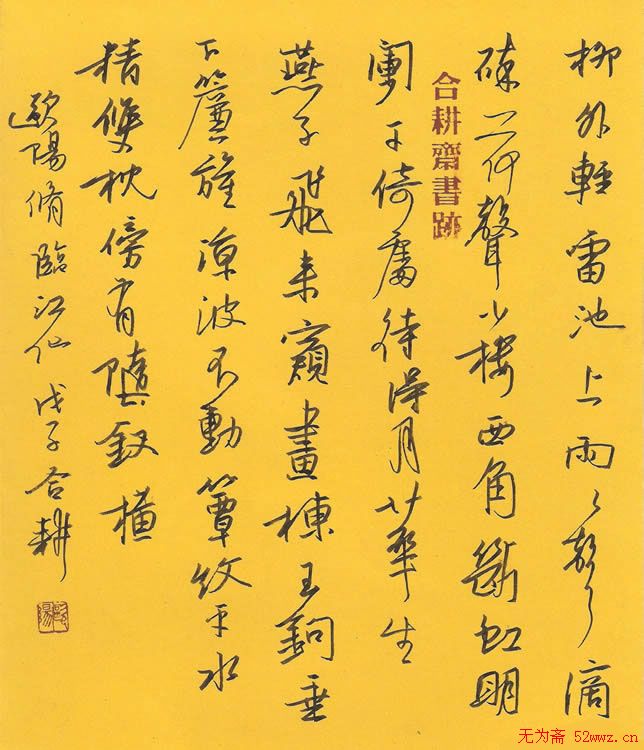 柳外輕雷池上雨〻聲滴
碎荷聲小樓西角斷虹明
闌干倚處待得月華生
燕子飛來窺畫棟玉鉤垂
下簾旌涼波不動簟紋平水
精雙枕傍有墮釵橫
歐陽脩臨江仙 戊子合耕
合耕齋書跡
无为斋 52wwz.cn